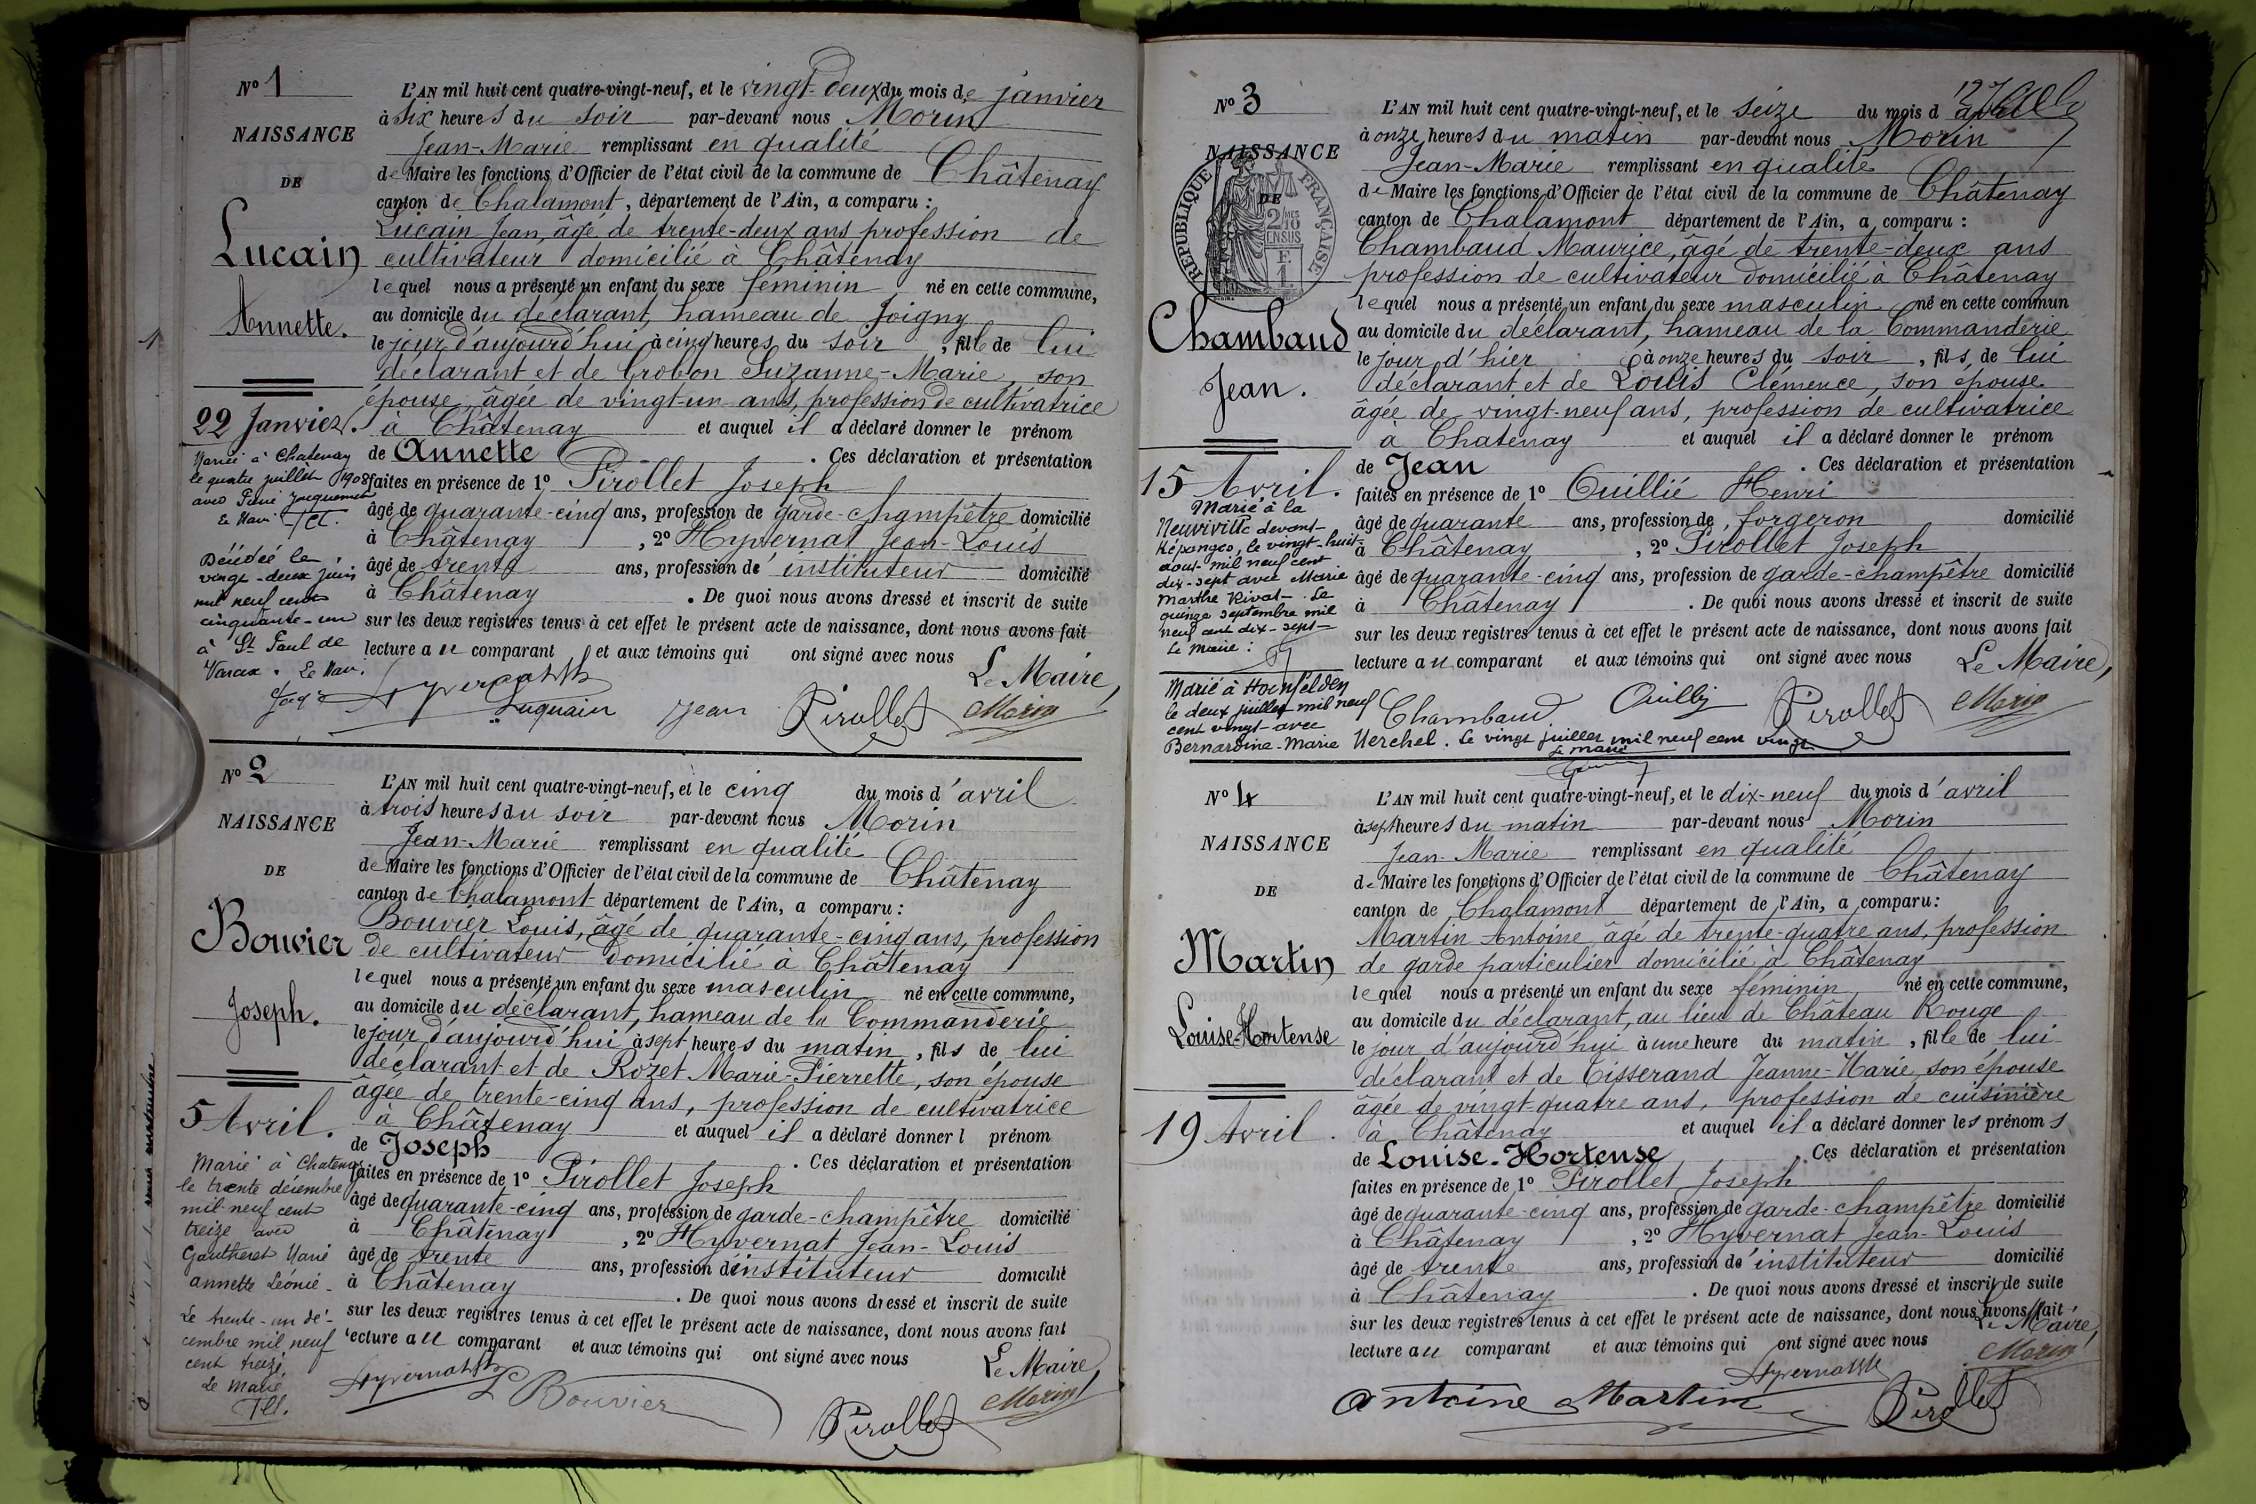 Nº 1
NAISSANCE
DE
Lucain
Annette.
22 Janvier.
Marié à Chatenay
le quatre juillet 1908
avec
Décédée le
vingt-deux juin
mil neuf cent
cinquante-un
à St Paul de
Varax. Le Mair.
L'AN mil huit cent quatre-vingt-neuf, et le vingt-deux du mois de janvier
à six heures du soir par-devant nous Morin
Jean-Marie remplissant en qualité
de Maire les fonctions d'Officier de l'état civil de la commune de Châtenay
canton de Chalamont, département de l'Ain, a comparu :
Lucain Jean, âgé de trente-deux ans profession de
cultivateur domicilié à Châtenay
lequel nous a présenté un enfant du sexe féminin né en cette commune,
au domicile du déclarant, hameau de Joigny
le jour d'aujourd'hui à cinq heures du soir, fille de lui
déclarant et de Grobon Suzanne-Marie son
épouse âgée de vingt-un ans, profession de cultivatrice
à Châtenay et auquel il a déclaré donner le prénom
de Annette. Ces déclaration et présentation
faites en présence de 1º Pirollet Joseph
âgé de quarante-cinq ans, profession de garde-champêtre domicilié
à Châtenay, 2º Hyvernat Jean-Louis
âgé de trente ans, profession de instituteur domicilié
à Châtenay. De quoi nous avons dressé et inscrit de suite
sur les deux registres tenus à cet effet le présent acte de naissance, dont nous avons fait
lecture au comparant et aux témoins qui ont signé avec nous
Le Maire,
Hyvernat Luquain Jean Pirollet Morin
Nº 2
NAISSANCE
DE
Bouvier
Joseph.
5 Avril.
Marié à Chatenay
le trente décembre
mil neuf cent
treize avec
Gautheret Marie
annette Léonie -
Le trente-un dé-
cembre mil neuf
cent treize
Le Maire
L'AN mil huit cent quatre-vingt-neuf, et le cinq du mois d'avril
à trois heures du soir par-devant nous Morin
Jean-Marie remplissant en qualité
de Maire les fonctions d'Officier de l'état civil de la commune de Châtenay
canton de Chalamont département de l'Ain, a comparu :
Bouvier Louis, âgé de quarante-cinq ans, profession
de cultivateur domicilié à Châtenay
lequel nous a présenté un enfant du sexe masculin né en cette commune,
au domicile du déclarant, hameau de la Commanderie
le jour d'aujourd'hui à sept heures du matin, fils de lui
déclarant et de Rozet Marie-Pierrette, son épouse
âgée de trente-cinq ans, profession de cultivatrice
à Châtenay et auquel il a déclaré donner l prénom
de Joseph. Ces déclaration et présentation
faites en présence de 1º Pirollet Joseph
âgé de quarante-cinq ans, profession de garde-champêtre domicilié
à Châtenay, 2º Hyvernat Jean-Louis
âgé de trente ans, profession d'instituteur domicilié
à Châtenay. De quoi nous avons dressé et inscrit de suite
sur les deux registres tenus à cet effet le présent acte de naissance, dont nous avons fait
lecture au comparant et aux témoins qui ont signé avec nous
Le Maire,
Hyvernat Bouvier Pirollet Morin
Nº 3
NAISSANCE
DE
RÉPUBLIQUE FRANÇAISE
Chambaud
Jean.
15 Avril.
Marié à la
Neuville devant-
le vingt-huit
aout mil neuf cent
dix-sept avec Marie
Marthe Rivat. Le
quinze septembre mil
neuf cent dix-sept
Le Maire :
Marié à
le deux juillet mil neuf
cent vingt avec
Bernardine-Marie Herchel. Le vingt juillet mil neuf cent vingt
Le maire
L'AN mil huit cent quatre-vingt-neuf, et le seize du mois d'avril
à onze heures du matin par-devant nous Morin
Jean-Marie remplissant en qualité
de Maire les fonctions d'Officier de l'état civil de la commune de Châtenay
canton de Chalamont département de l'Ain, a comparu :
Chambaud Maurice, âgé de trente-deux ans
profession de cultivateur domicilié à Châtenay
lequel nous a présenté un enfant du sexe masculin né en cette commun
au domicile du déclarant, hameau de la Commanderie
le jour d'hier à onze heures du soir, fils de lui
déclarant et de Louis Clémence, son épouse
âgée de vingt-neuf ans, profession de cultivatrice
à Chatenay et auquel il a déclaré donner le prénom
de Jean. Ces déclaration et présentation
faites en présence de 1º Cuillié Henri
âgé de quarante ans, profession de forgeron domicilié
à Châtenay, 2º Pirollet Joseph
âgé de quarante-cinq ans, profession de garde-champêtre domicilié
à Châtenay. De quoi nous avons dressé et inscrit de suite
sur les deux registres tenus à cet effet le présent acte de naissance, dont nous avons fait
lecture au comparant et aux témoins qui ont signé avec nous
Le Maire,
Chambaud Pirollet Morin
Nº 4
NAISSANCE
DE
Martin
Louise-Hortense
19 Avril.
L'AN mil huit cent quatre-vingt-neuf, et le dix-neuf du mois d'avril
à sept heures du matin par-devant nous Morin
Jean-Marie remplissant en qualité
de Maire les fonctions d'Officier de l'état civil de la commune de Châtenay
canton de Chalamont département de l'Ain, a comparu :
Martin Antoine âgé de trente-quatre ans, profession
de garde particulier domicilié à Châtenay
lequel nous a présenté un enfant du sexe féminin né en cette commune,
au domicile du déclarant, au lieu de Château Rouge
le jour d'aujourd'hui à une heure du matin, fille de lui
déclarant et de Tisserand Jeanne-Marie, son épouse
âgée de vingt quatre ans, profession de cuisinière
à Châtenay et auquel il a déclaré donner les prénoms
de Louise-Hortense. Ces déclaration et présentation
faites en présence de 1º Pirollet Joseph
âgé de quarante-cinq ans, profession de garde-champêtre domicilié
à Châtenay, 2º Hyvernat Jean-Louis
âgé de trente ans, profession de instituteur domicilié
à Châtenay. De quoi nous avons dressé et inscrit de suite
sur les deux registres tenus à cet effet le présent acte de naissance, dont nous avons fait
lecture au comparant et aux témoins qui ont signé avec nous
Le Maire,
Antoine Martin Hyvernat Pirollet Morin